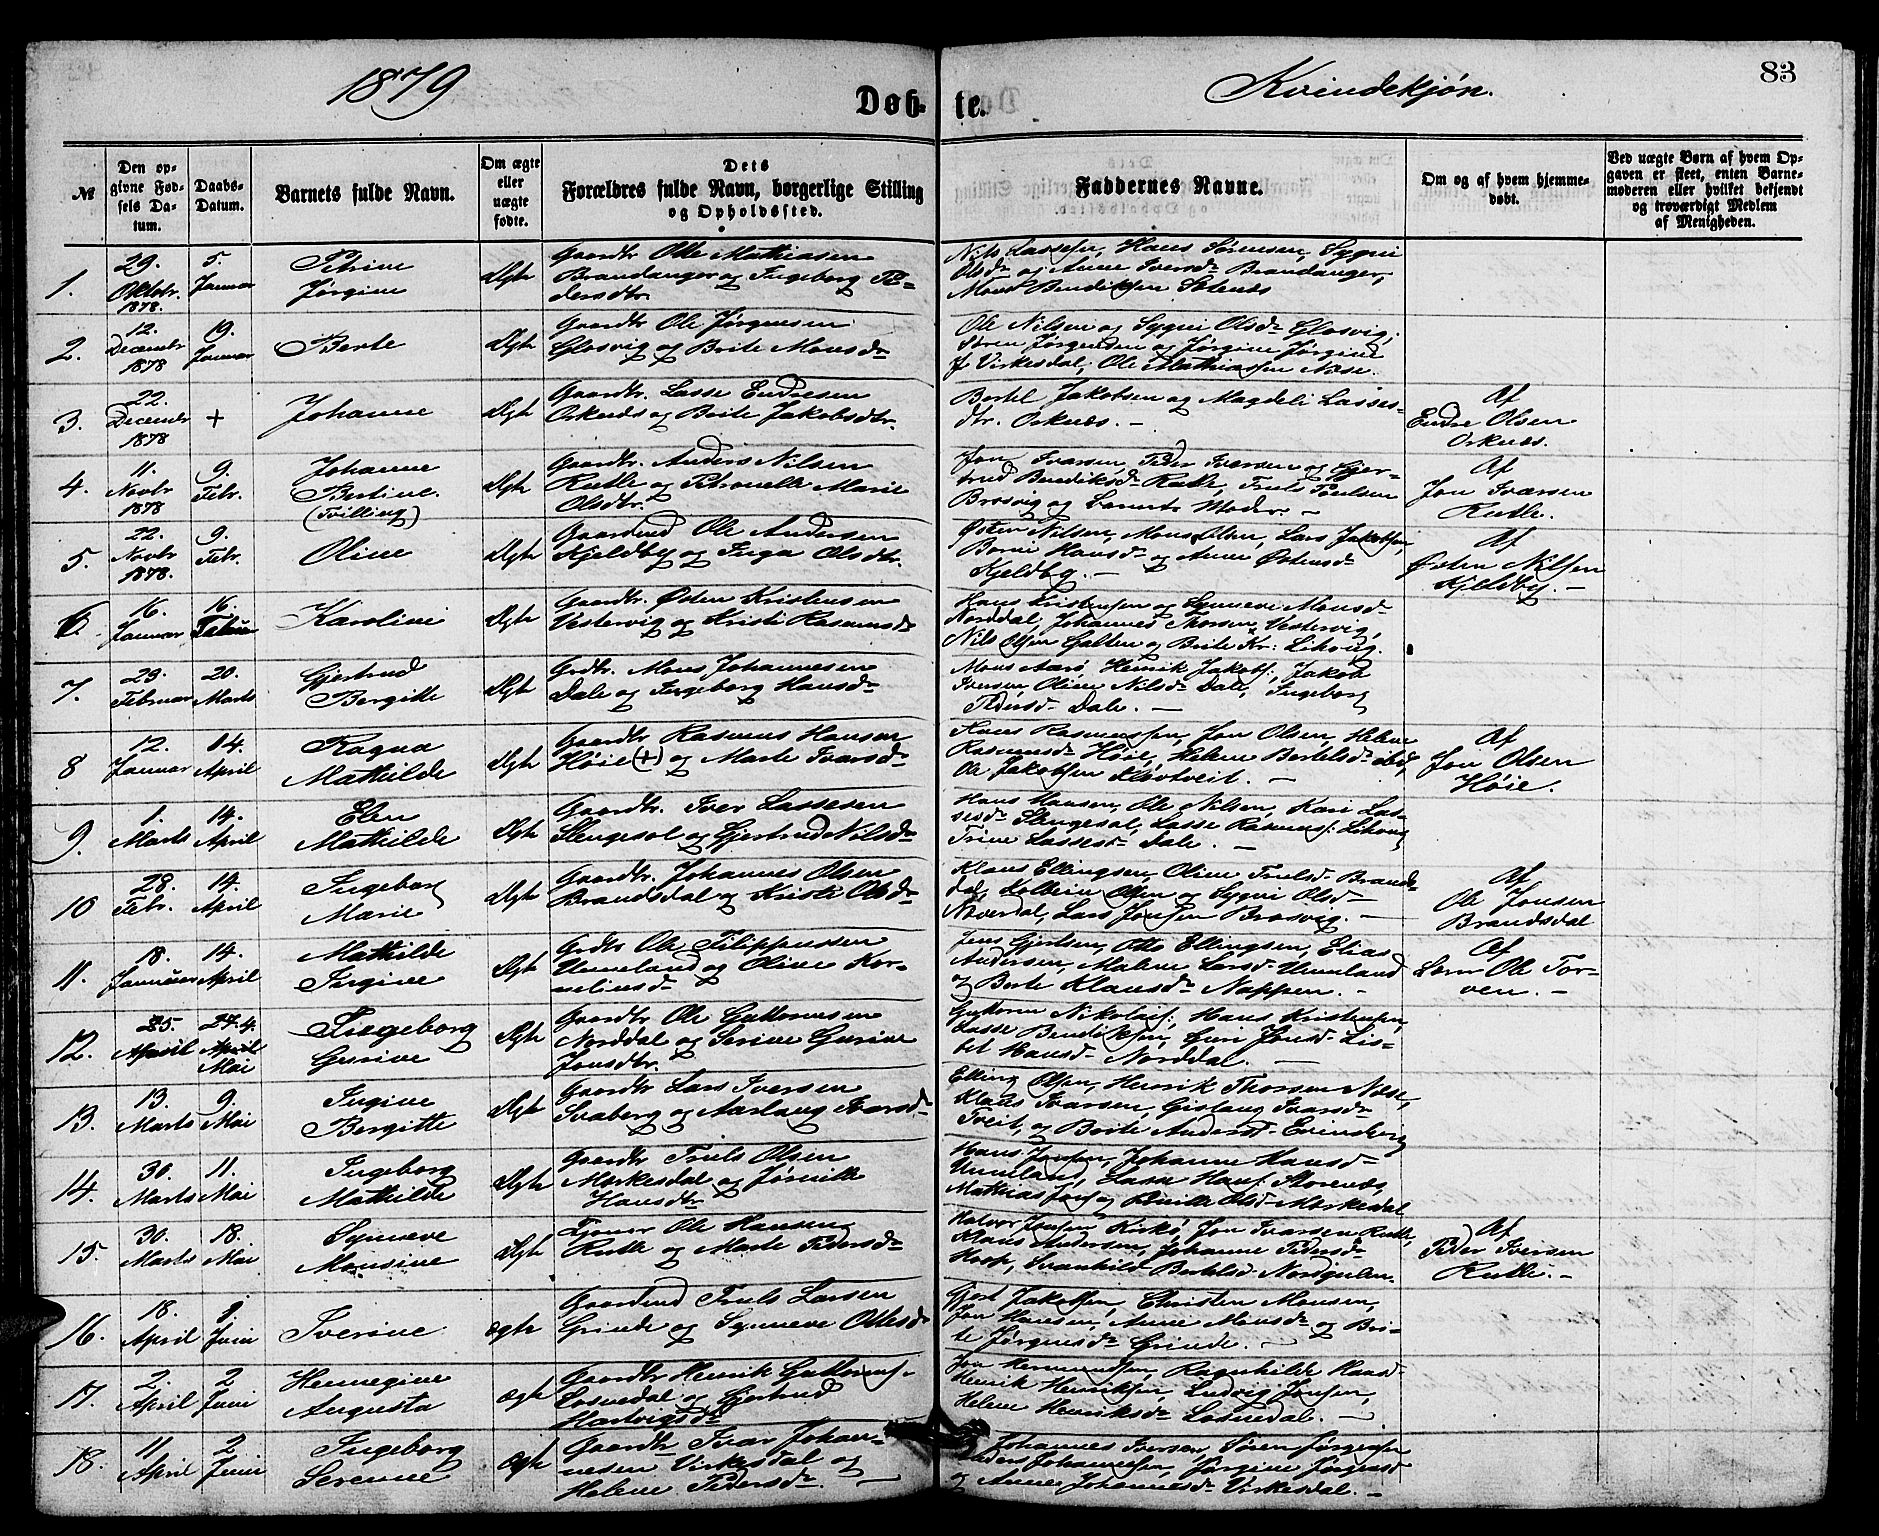 1879
Døbte.
Kvindekjøn.
83
№
Den opgivne Fødsels Datum.
Daabs-Datum.
Barnets fulde Navn.
Om ægte eller uægte fødte.
Dets Forældres fulde Navn, borgerlige Stilling og Opholdssted.
Faddernes Navne.
Om og af hvem hjemmedøbt.
Ved uægte Børn af hvem Opgaven er skeet, enten Barnemoderen eller hvilket bekjendt og troværdigt Medlem af Menigheden.
1. 29. Oktobr. 1878. 5. Januar Petrine Jørgine Ægte
Gaardbr Ole Mathiasen
Brandanger og Ingeborg Pe-
dersdtr.
Nils Lassesen, Hans Sørensen, Sygni
Olsdr og Anne Iversdr Brandanger,
Mons Bendiksen
2. 12. Decembr 1878 19. Januar Berte Ægte
Gaardbr Ole Jørgensen
Glosvig og Brite Monsdr
Ole Nilsen og Sygni Olsdr Glosvig,
Søren Jørgensen og Jørgine Jørgine
Virkesdal, Ole Mathiassen Næse.
3. 22. Decembr 1878 + Johanne Ægte
Gaardbr. Lasse Endresen
Osknes og Brite Jakobsdtr.
Bertel Jakobsen og Magdeli Lasses-
dtr. Osknes. -
Af
Endre Olsen
Osknes.
4. 11. Novbr 1878 9. Febr. Johanne Bertine. (Tvilling) Ægte
Gaardbr. Anders Nilsen
Rutle og Petronelle Marie
Olsdtr.
Jon Ivarsen, Peder Iversen og Gjer-
trud Bendiksdr Rutle, Truls Poulsen
Brosvig og Barnets Moder. -
Af
Jon Ivarsen
Rutle.
5. 22. Novbr 1878. 9. Febr. Oline Ægte
Gaardmd Ole Andersen
Kjeldby og Inga Olsdtr.
Østen Nilsen, Mons Olsen, Lars Jakobsen,
Hansdr og Anne Østensdr
Kjeldby. -
Af
Østen Nilsen
Kjeldby. -
6. 16. Januar 16. Februar Karoline Ægte
Gaardbr. Østen Kristensen
Vestervig og Kristi Rasmusdr
Hans Kristensen og Synneve Monsdr
Norddal, Johannes Thorsen Vestervig,
Nils Olsen Galten og Brite Kr: Lihvig.
7. 29. Februar 20. Marts Gjertrud Bergitte Ægte
Grdbr. Mons Johannesen
Dale og Ingeborg Hansdr
Mons Aarø, Henrik Jakobs., Jakob
Iversen, Oline Nilsdr Dale, Ingeborg
Pedersdr Dale. -
8 12. Januar 14. April Ragna Mathilde Ægte
Gaardbr Rasmus Hansen
Høie (+) og Marte Ivarsdr
Hans Rasmussen, Jon Olsen, Helene
Rasmusdr Høie, Helene Bertelsdr ibid,
Ole Jakobsen Kløvtveit. -
Af
Jon Olsen
Høie.
9. 1. Marts 14. April Elen Mathilde Ægte
Gaardbr. Iver Lassesen
Slengesol og Gjertrud Nilsdr
Hans Hansen, Ole Nilsen, Kari Las-
sesdr Slengesol, Lasse Rasmuss. Lihvig
Trine Lassesdr Dale. -
10 28. Febr. 14. April Ingeborg Marie Ægte
Gaardbr. Johannes Olsen
Brandsdal og Kristi Olsdr
Klaus Ellingsen, Oline Trulsdr Brands-
dal, Kolbein Olsen og Sygni Olsdr
Noverdal, Lars Jonsen Brosvig. -
Af
Ole Jonsen
Brandsdal
11. 18. Januar 14. April Mathilde Ingine Ægte
Grdbr Ole Filippussen
Unneland og Oline Kor-
neliusdr
Jens Gjertsen, Otto Ellingsen, Elias
Andersen, Malene Larsdr Unneland
og Berte Klausdr Nappen. -
Af
Lærer Ole Tor-
ven. -
12. 25. April 27. 4. April Mai Ingeborg Gurine Ægte
Gaardbr Ole Guttormsen
Norddal og Serine Gurine
Jonsdtr.
Guttorm Nikolais., Hans Kristensen,
Lasse Bendiksen, Guri Jonsdr Lis-
bet Hansdr Norddal. -
13. 13. Marts 9. Mai Ingine Bergitte Ægte
Gaardbr Lars Iversen
Svaberg og Aarlaug Ivarsdr
Elling Olsen, Henrik Thorsen Næse,
Klaus Ivarsen, Gislaug Ivarsdr
Tveit, og Berte Andersdr
14. 30. Marts 11. Mai Ingeborg Mathilde Ægte
Gaardbr Truls Olsen
Mørkesdal og Jørnille
Hansdtr
Hans Jonsen, Johanne Hansdr
Unneland, Lasse Hans. Storenes,
Mathias Jons. og Olsdr Mørkesdal
15. 30. Marts 18. Mai Synneve Monsine Ægte
Tjener Ole Hansen
Rutle og Marte Pedersdr
Halvor Jonsen Kirkø, Jon Ivarsen Rutle,
Klaus Andersen, Johanne Pedersdr
Svanhild Bertelsdr Nordgulen.
Af
Peder Iversen
Rutle. -
16. 18. April 1 Juni Iverine ægte
Gaardmd Truls Larsen
Grinde og Synneve Ottesdr
Gjert Jakobsen, Christen Monsen,
Jon Hansen, Anne Monsdr og Bri-
te Jørgensdr Grinde. -
17. 2. April 2 Juni Hennegine Augusta ægte
Gaardbr Henrik Guttorms.
Losnedal og Gjertrud
Hartvigsdr
Jon Hermundsen, Ragnhilde Hansdr
Henrik Henriksen, Ludvig Jonsen,
Helene Henriksdr Losnedal. -
18. 11 April 2 Juni Ingeborg Serenne ægte
Gaardbr Ivar Johan-
nesen Virkesdal og
Helene Pedersdr. -
Johannes Iversen, Søren Jørgensen
Peders Johannessen, Jørgine Jørgensdr
og Anne Johannesdr Virkesdal. -